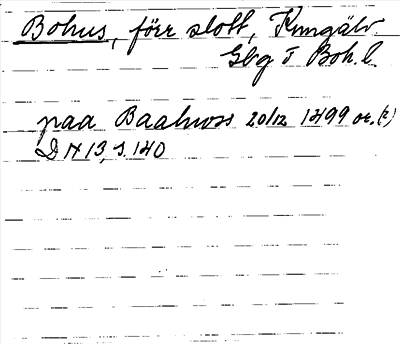 Bohus, förr slott, Kungälv.
Gbg o Boh. l.
paa Baahwss 20/12 1499 or. (?)
DN 13, s. 140